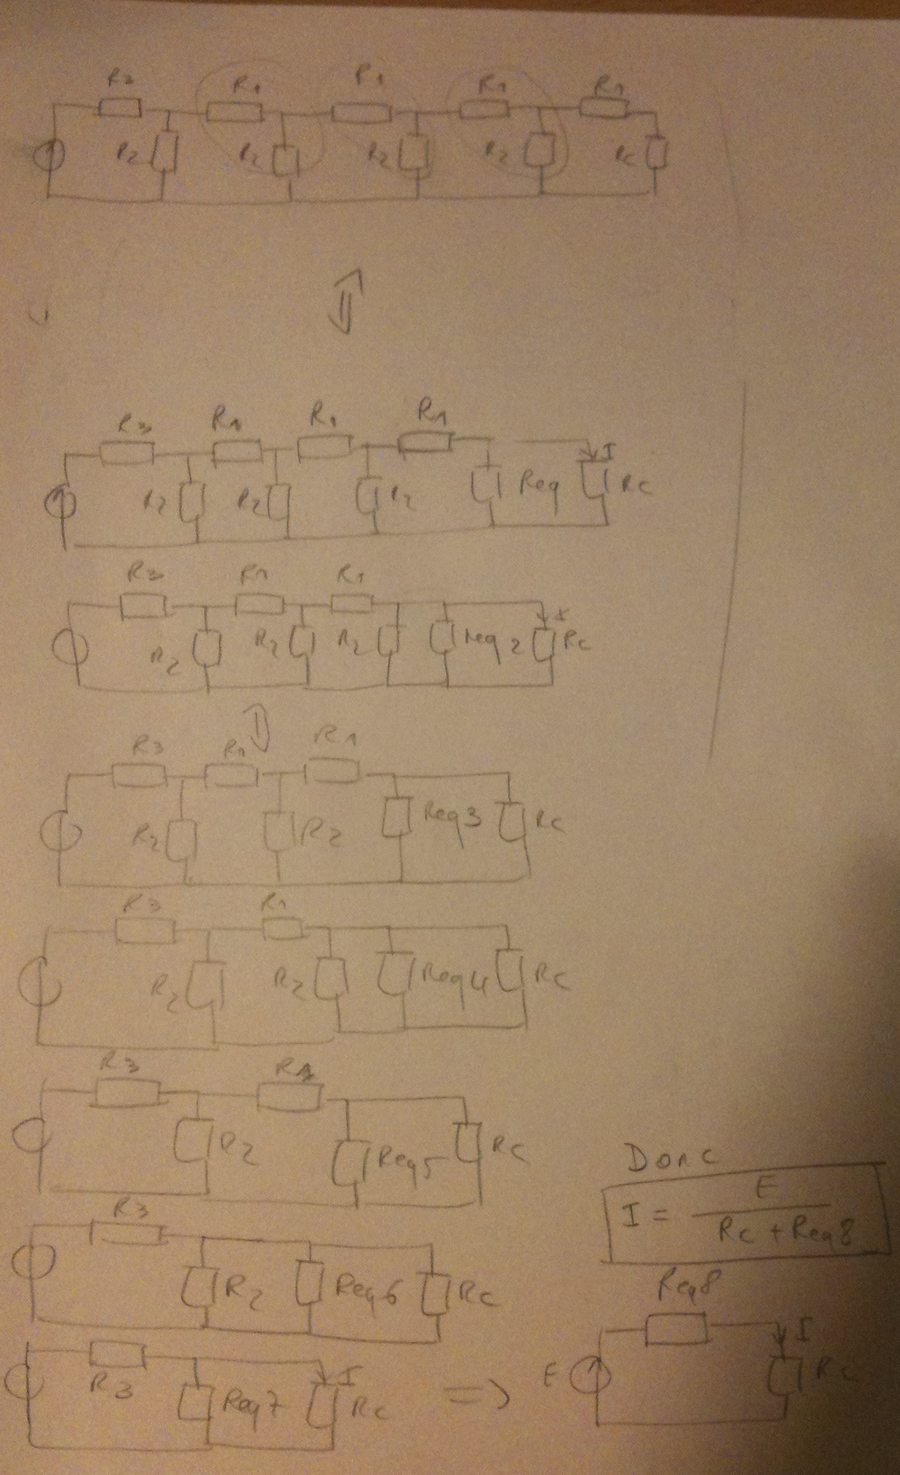 R3 R1 R1 R1 R1
R2 R2 R2 R2 Rc
R3 R1 R1 R1
R2 R2 R2 Req I Rc
R3 R1 R1
R2 R2 R2 Req2 I Rc
R3 R1 R1
R2 R2 Req3 Rc
R3 R1
R2 R2 Req4 Rc
R3 R1
R2 Req5 Rc
R3
R2 Req6 Rc
R3 Req7 I Rc
Donc
I = E / Rc + Req8
Req8
E I Rc